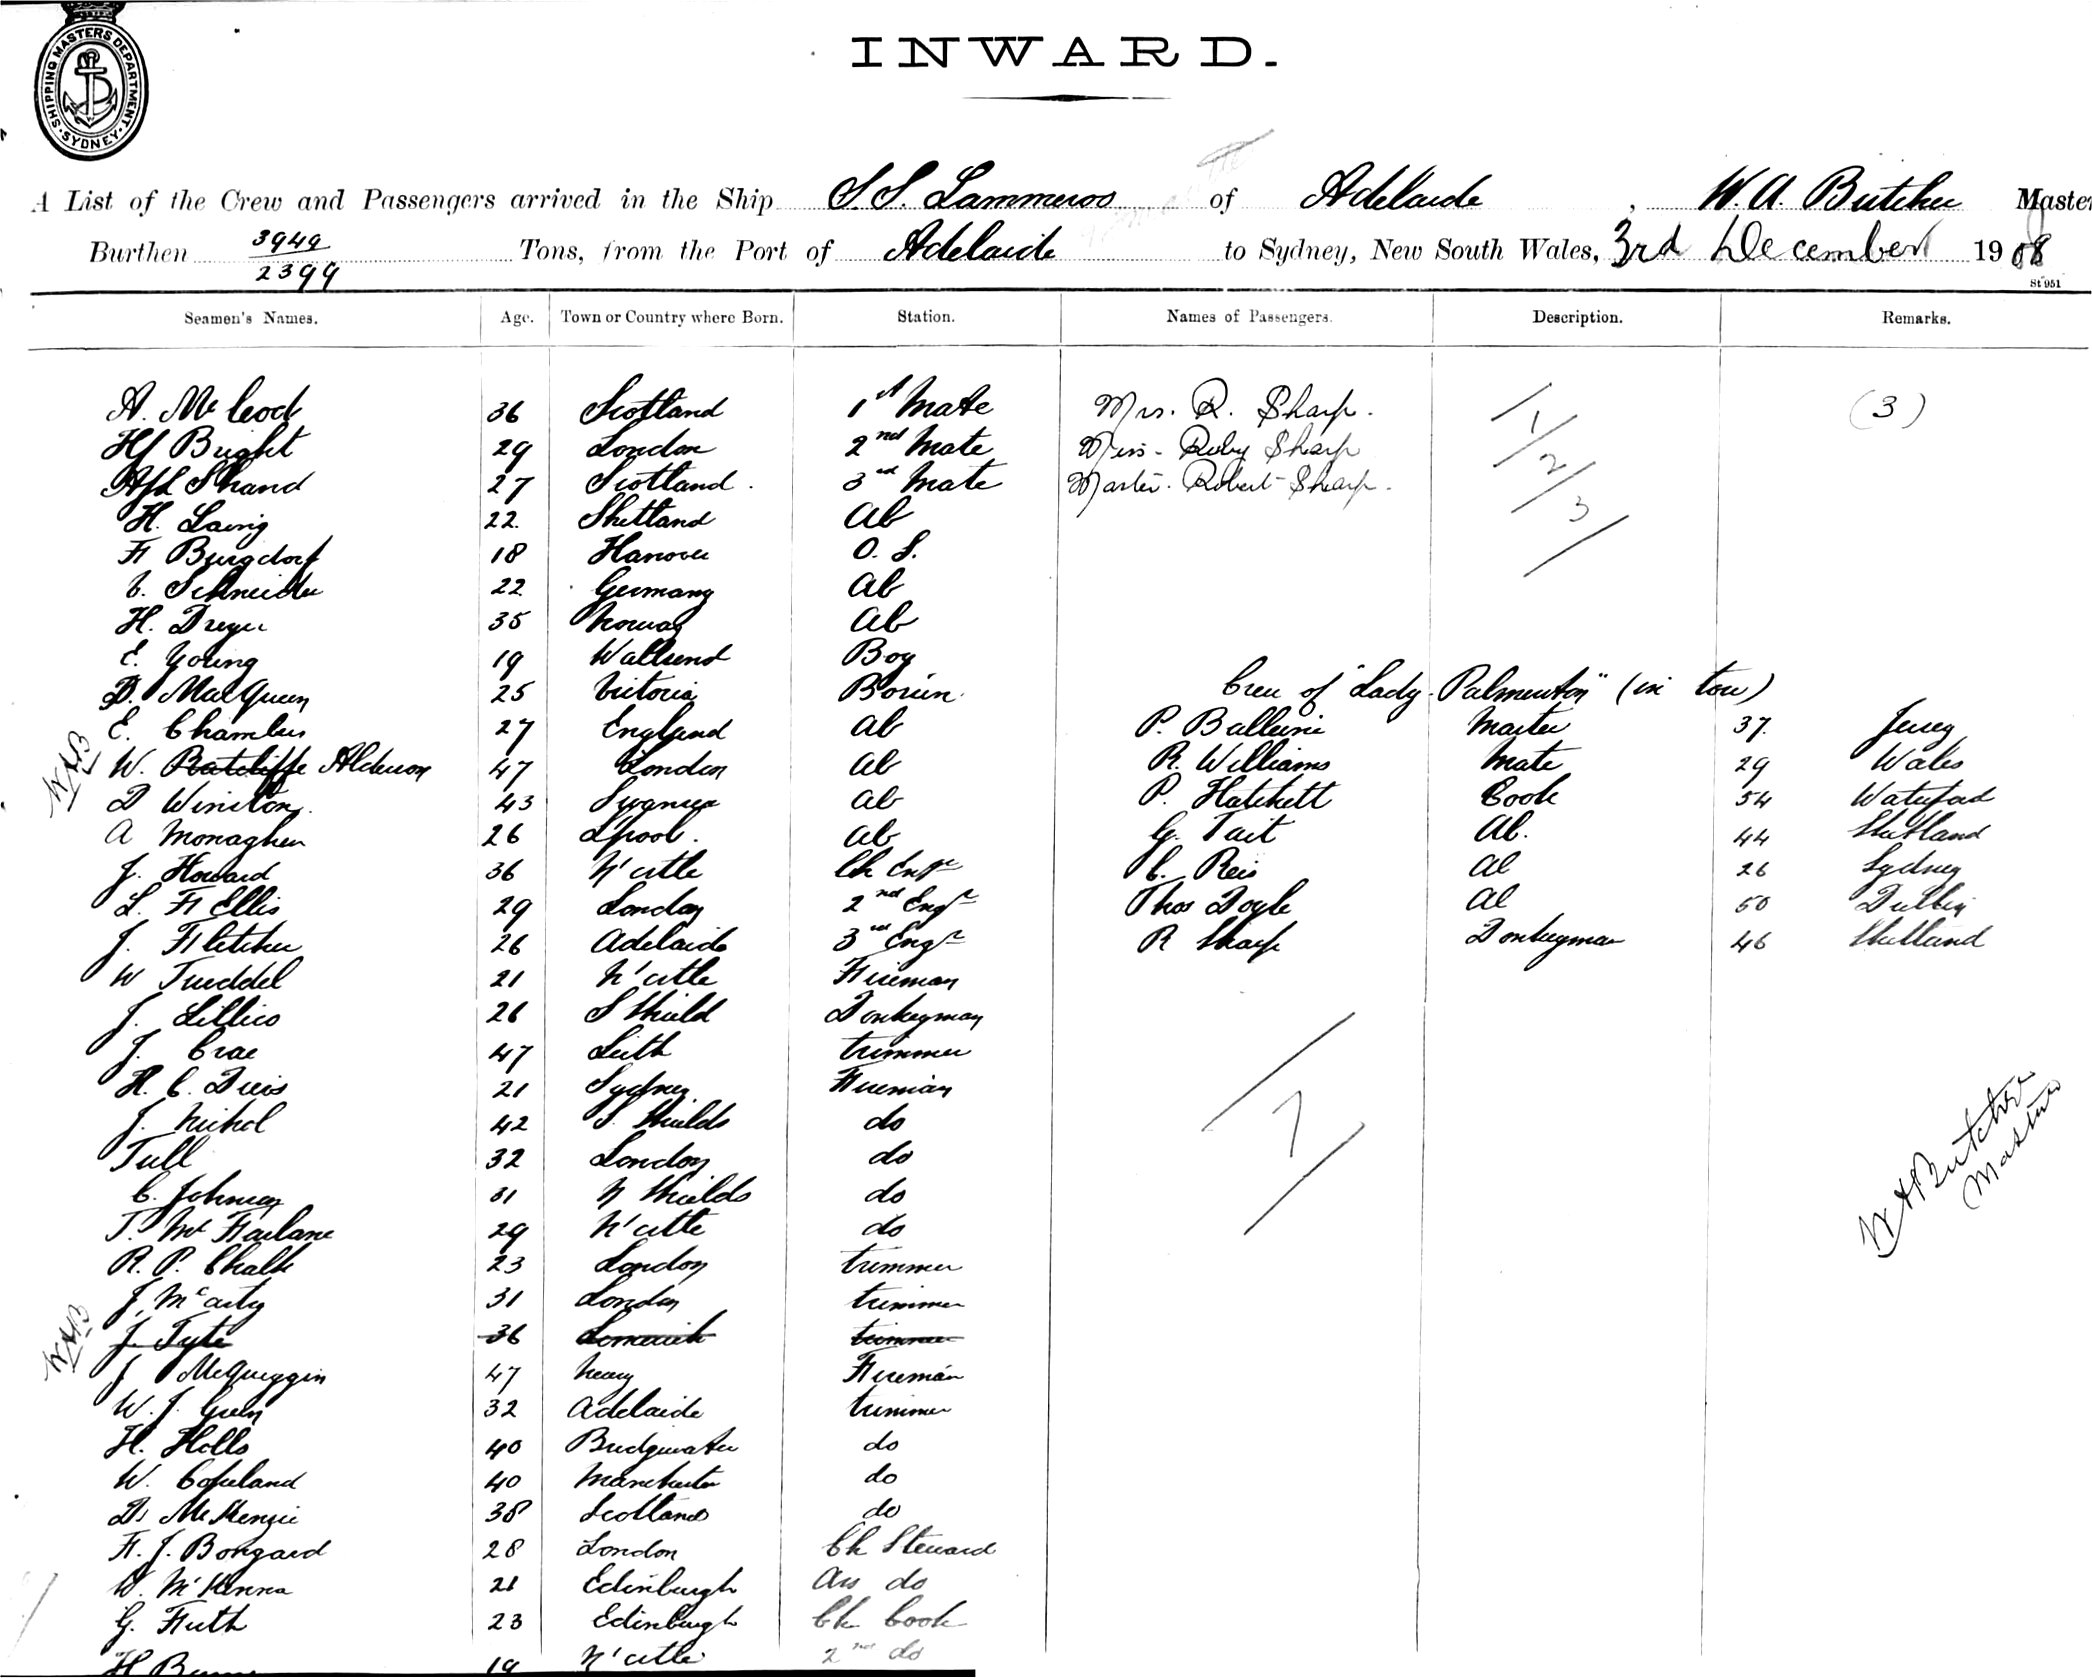 SHIPPING MASTERS DEPARTMENT. SYDNEY.
INWARD.
A List of the Crew and Passengers arrived in the Ship S.S. Lammeroo of Adelaide, W. A. Butcher Master
Burthen 3949 / 2399 Tons, from the Port of Adelaide to Sydney, New South Wales, 3rd December 1908
St 951
Seamen's Names. Age. Town or Country where Born. Station. Names of Passengers. Description. Remarks.
A. McLeod 36 Scotland 1st Mate Mrs. R. Sharp. 1 (3)
Hf Bright 29 London 2nd Mate Miss Ruby Sharp 2
Shand 27 Scotland. 3rd Mate Master. Robert Sharp. 3
H. Laing 22 Shetland Ab
F Burgdorf 18 Hanover O. S.
C. Schneider 22 Germany Ab
H. Dreyer 35 Norway Ab
E. Young 19 Wallsend Boy
D. MacQueen 25 Victoria Bosun. Crew of "Lady Palmerston" (in tow)
E. Chambers 27 England Ab P. Balleine Master 37. Jersey
WAB W. Ratcliffe Alderson 47 London Ab R. Williams Mate 29 Wales
D Winston. 43 Swansea Ab P. Hatchett Cook 54 Waterford
A Monaghen 26 Lpool. Ab G. Tait Ab. 44 Shetland
J. Howard 36 N'cstle Ch Engr C. Reis Ab 26 Sydney
L. F Ellis 29 London 2nd Engr Thos Doyle Ab 50 Dublin
J. Fletcher 26 Adelaide 3rd Engr R Sharp Donkeyman 46 Shetland
W Tweddel 21 N'cstle Fireman
J. Lillico 26 S Shield Donkeyman
J. Crae 47 Leith trimmer
H. C. 21 Sydney Fireman
J. Nichol 42 S. Shields do 7
Tull 32 London do
C. Johnson 31 N Shields do
T. Mc Farlane 29 N'cstle do
R. P. Chalk 23 London trimmer
J. McCarty 31 London trimmer
WAB J. Tyte 36 Limerick trimmer
J McQuiggin 47 Newry Fireman
W. J. Green 32 Adelaide trimmer
H. Holls 40 Bridgwater do
W. Copeland 40 Manchester do
D. McKenzie 38 Scotland do
F. J. Bongard 28 London Ch Steward
W. McKenna 21 Edinburgh Ass do
G. Firth 23 Edinburgh Ch Cook
H 19 N'cstle 2nd do
WA Butcher
Master